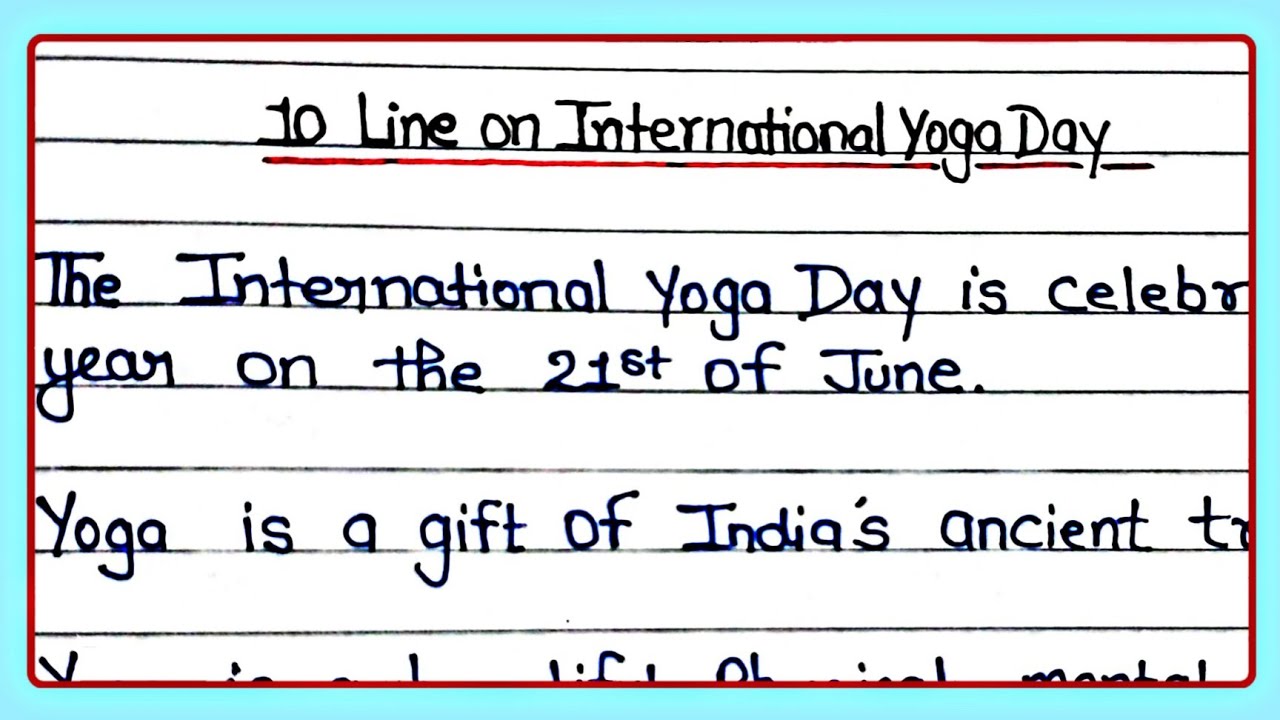 10 Line on International Yoga Day
The International Yoga Day is celebr
year on the 21st of June.
Yoga is a gift of India's ancient tr
is physical mental